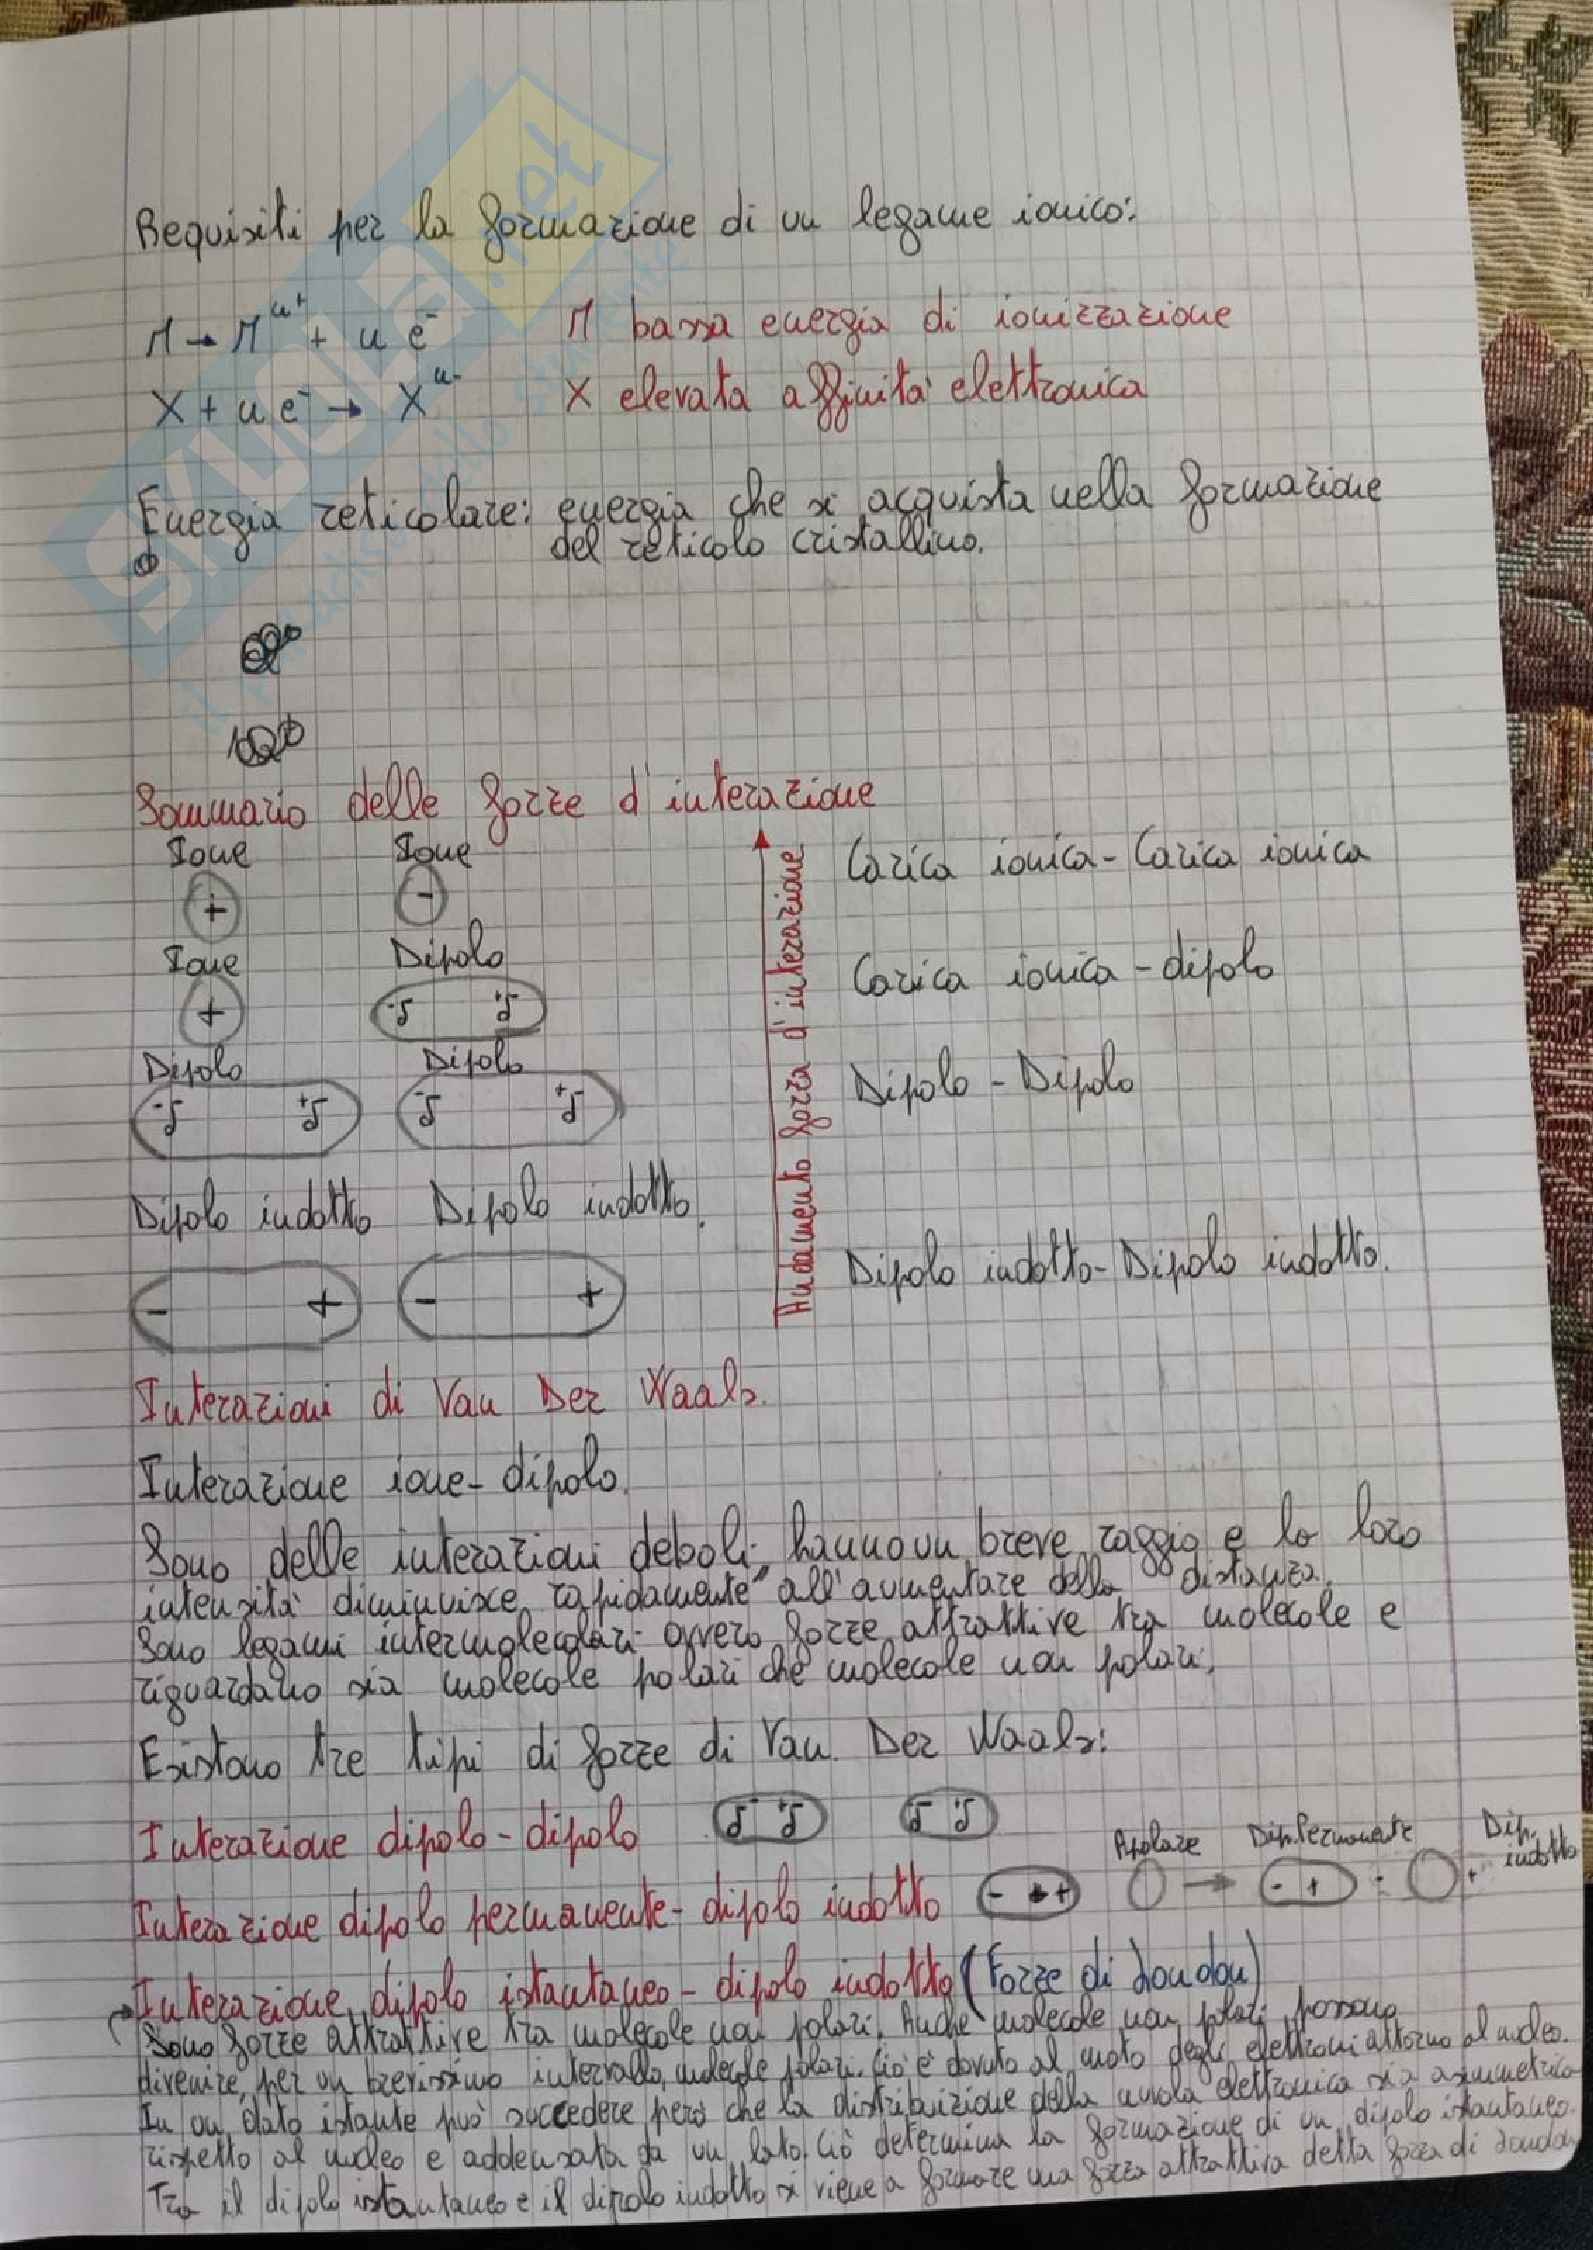 Requisiti per la formazione di un legame ionico:
M → M^n+ + n e^- M bassa energia di ionizzazione
X + n e^- → X^n- X elevata affinità elettronica
Energia reticolare: energia che si acquista nella formazione
del reticolo cristallino.
Sommario delle forze d'interazione
Ione Ione
+ -
Ione Dipolo
+ -δ +δ
Dipolo Dipolo
-δ +δ -δ +δ
Dipolo indotto Dipolo indotto.
- + - +
Andamento forza d'interazione
Carica ionica - Carica ionica
Carica ionica - dipolo
Dipolo - Dipolo
Dipolo indotto - Dipolo indotto.
Interazioni di Van Der Waals.
Interazione ione - dipolo.
Sono delle interazioni deboli, hanno un breve raggio e la loro
intensità diminuisce rapidamente all'aumentare della distanza.
Sono legami intermolecolari ovvero forze attrattive tra molecole e
riguardano sia molecole polari che molecole non polari.
Esistono tre tipi di forze di Van Der Waals:
Interazione dipolo - dipolo δ- +δ δ- +δ
Apolare Dip. Permanente Dip. indotto
Interazione dipolo permanente - dipolo indotto
Interazione dipolo istantaneo - dipolo indotto (Forze di London)
Sono forze attrattive tra molecole non polari. Anche molecole non polari possono
divenire, per un brevissimo intervallo, molecole polari. Ciò è dovuto al moto degli elettroni attorno al nucleo.
In un dato istante può succedere però che la distribuizione della nuvola elettronica sia asimmetrica
rispetto al nucleo e addensata da un lato. Ciò determina la formazione di un dipolo istantaneo.
Tra il dipolo istantaneo e il dipolo indotto si viene a formare una forza attrattiva detta forza di London
SKUOLA.net